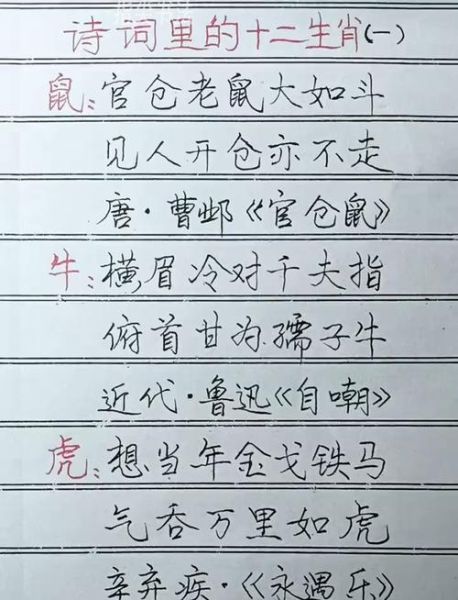 诗词里的十二生肖(一)
鼠:官仓老鼠大如斗
见人开仓亦不走
唐·曹邺《官仓鼠》
牛:横眉冷对千夫指
俯首甘为孺子牛
近代·鲁迅《自嘲》
虎:想当年金戈铁马
气吞万里如虎
辛弃疾·《永遇乐》